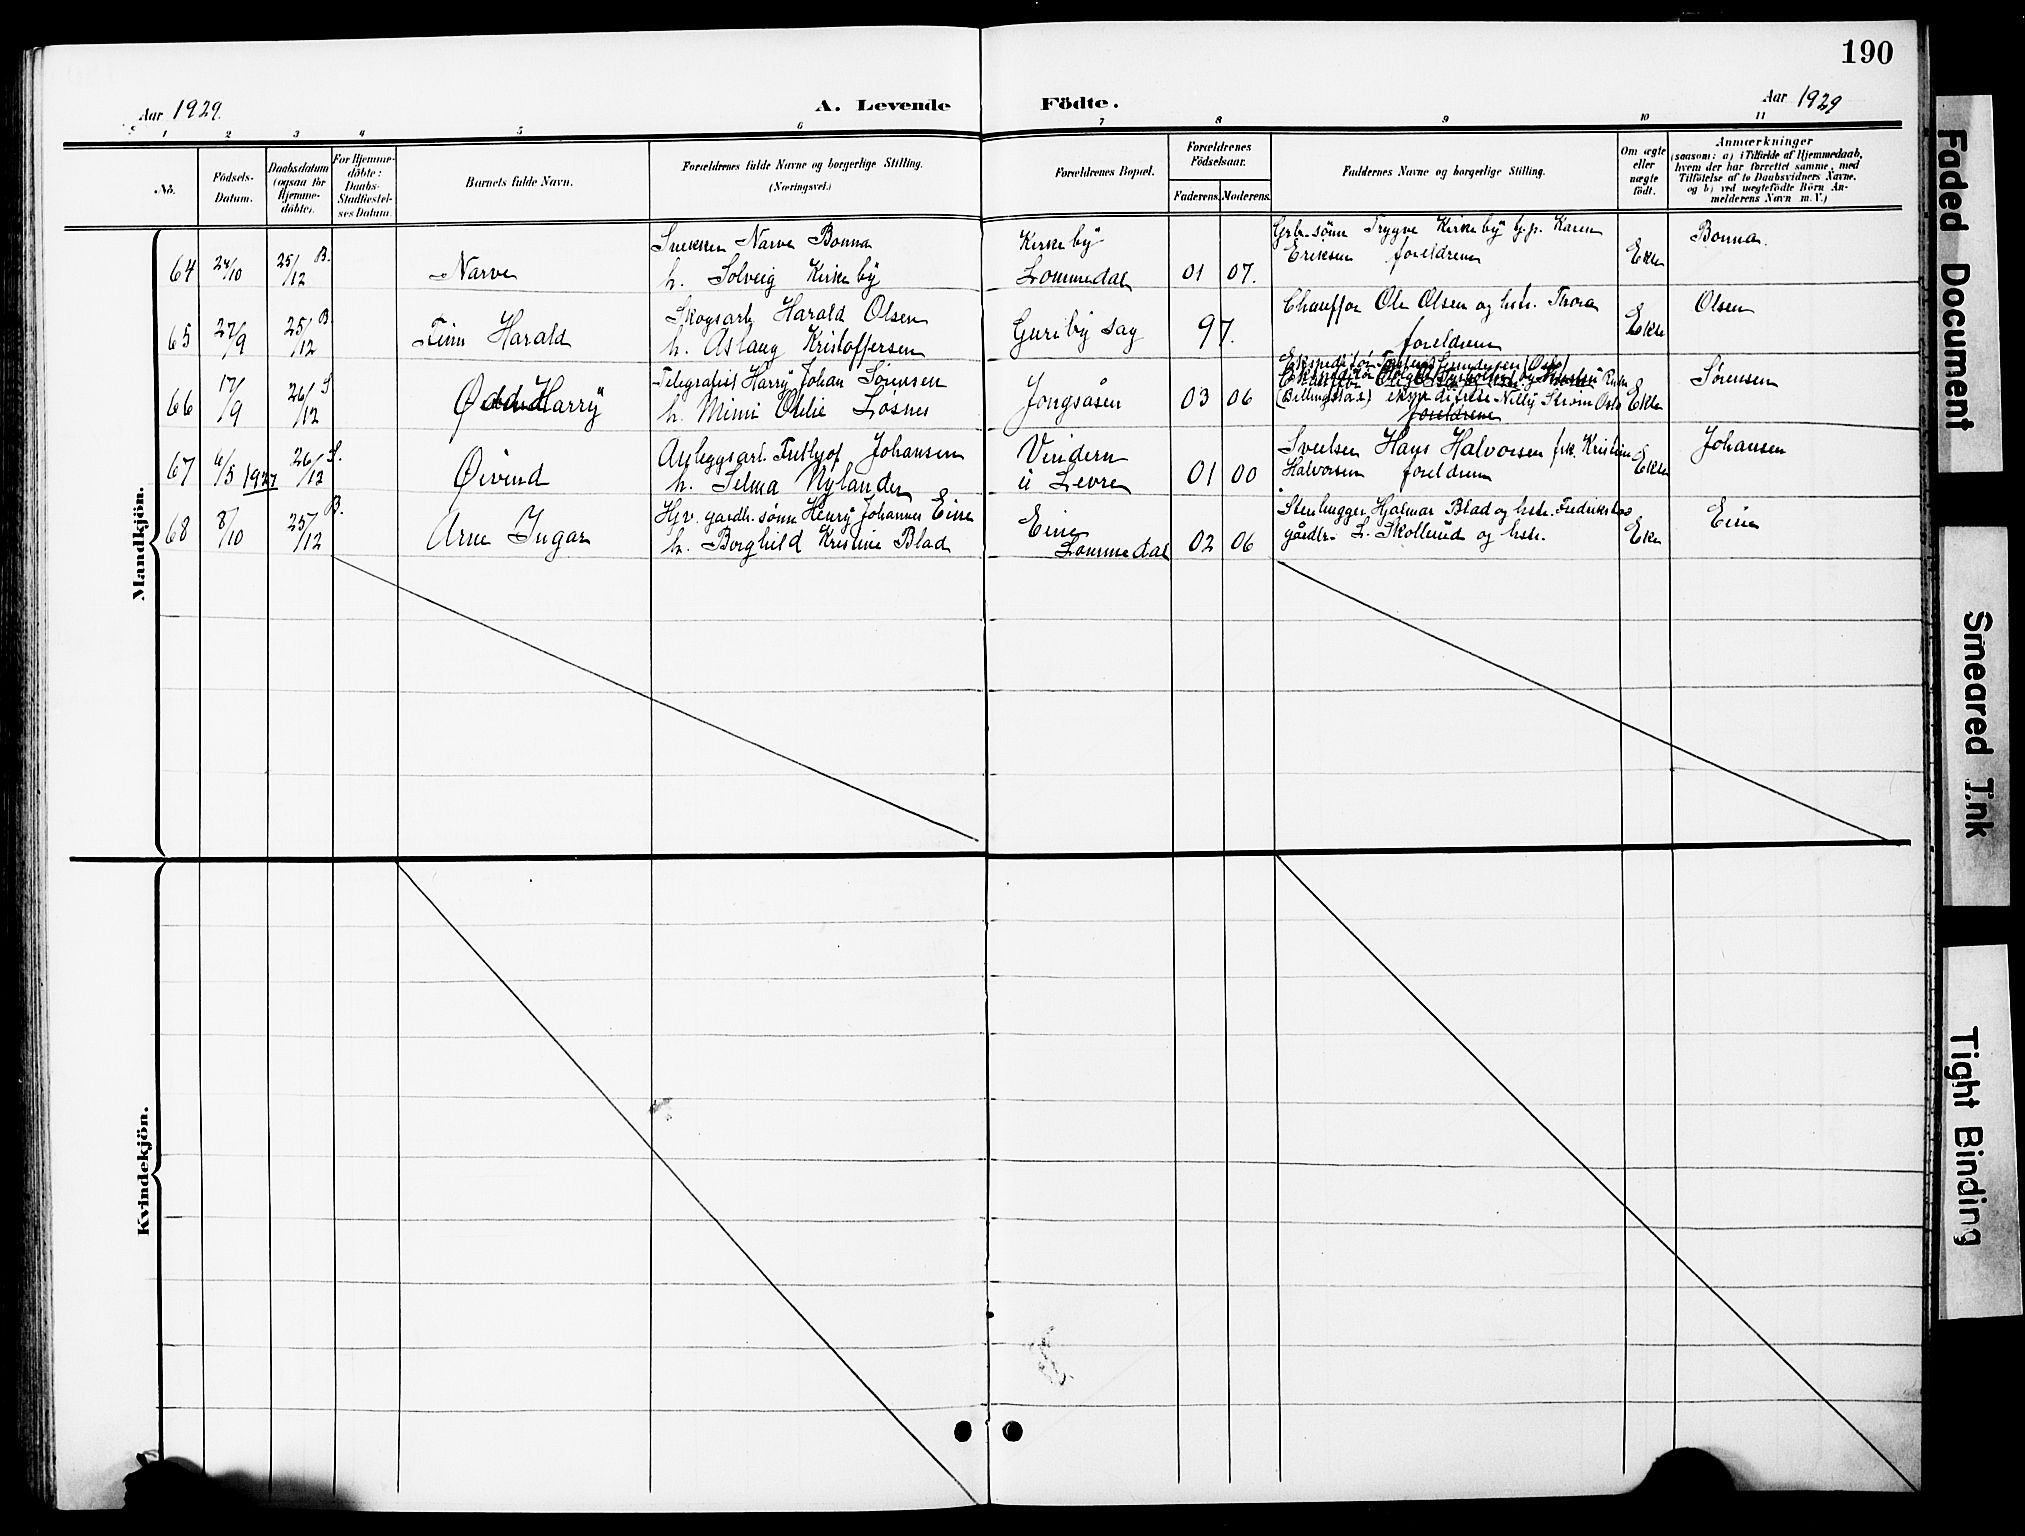 190
Aar 1929.
A. Levende Födte.
Aar 1929
1 2 3 4 5 6 7 8 9 10 11
No.
Födsels-Datum.
Daabsdatum (ogsaa for Hjemmedöbte).
For Hjemmedöbte: Daabs-Stadfæstelses Datum.
Barnets fulde Navn.
Forældrenes fulde Navne og borgerlige Stilling.
(Næringsvei.)
Forældrenes Bopæl.
Forældrenes Födselsaar.
Faderens. Moderens.
Faddernes Navne og borgerlige Stilling.
Om ægte eller uægte födt.
Anmærkninger
(saasom: a) i Tilfælde af Hjemmedaab, hvem der har forrettet samme, med Tilföielse af to Daabsvidners Navne, og b) ved uægtefödte Börn Anmelderens Navn m. V.)
Mandkjön.
64 24/10 25/12 B. Narve
Narve Bonna
h. Solveig Kirkeby
Kirkeby
Lommedal
01 07.
Grb. sönn Trygve Kirkeby g.p. Karen
Eriksen foreldrene
Ekte
Bonna.
65 27/9 25/12 B. Finn Harald
Skogsarb. Harald Olsen
h. Aslaug Kristoffersen
Guriby sag
97.
Chauffør Ole Olsen og hstr. Thora
foreldrene
Ekte
Olsen
66 17/9 26/12 S Odd Harry
Telegrafist Harry Johan Sørensen
h. Mimi Løsnes
Jongsåsen
03 06
(Billingstad) Nelly Strøm Oslo
foreldrene
Ekte
Sørensen
67 4/5 1927 26/12 S. Øivind
Anleggsarb. Frithjof Johansen
h. Selma Nylander
Vindern
Levre
01 00
Hans Halvorsen frk. Kristine
Halvorsen foreldrene
Ekte
Johansen
68 8/10 25/12 B. Arne Ingar
gardbr. sønn Henry Johannes Eine
h. Borghild Kristine Blad
Eine
Lommedal
02 06
Stenhugger Hjalmar Blad og hstr. Fredrikstad
gårdbr. L. Skollerud og hstr.
Ekte
Eine
Kvindekjön.
Faded Document
Smeared Ink
Tight Binding